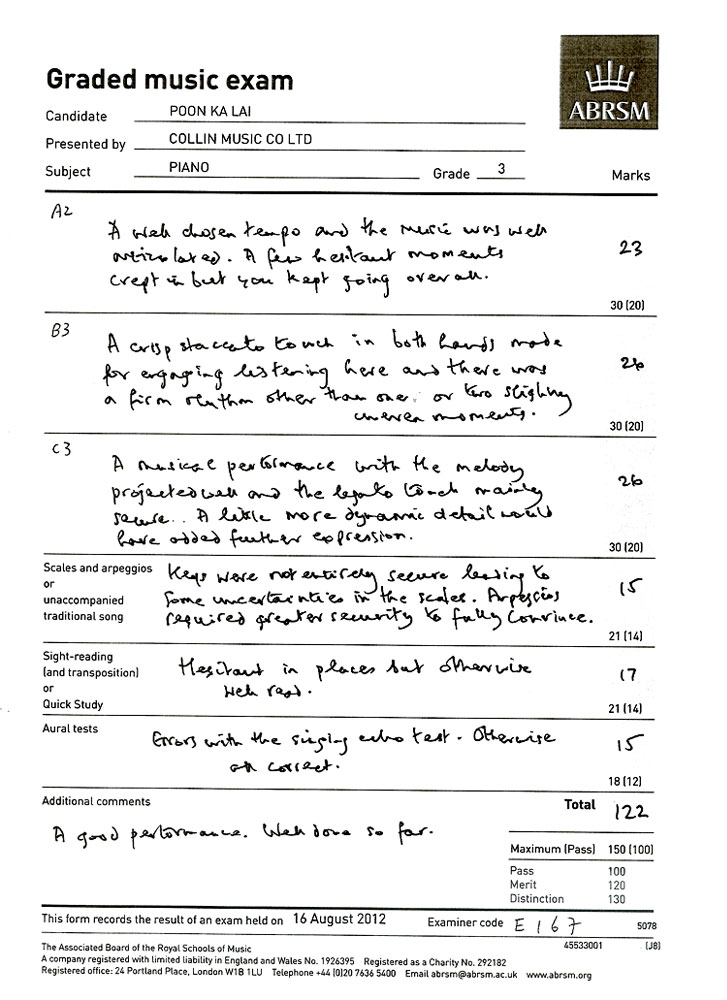 Graded music exam
ABRSM
Candidate POON KA LAI
Presented by COLLIN MUSIC CO LTD
Subject PIANO Grade 3 Marks
A2
A well chosen tempo and the music was well
articulated. A few hesitant moments
crept in but you kept going overall.
23
30 (20)
B3
A crisp staccato touch in both hands made
for engaging listening here and there was
a firm rhythm other than one or two slightly
uneven moments.
26
30 (20)
C3
A musical performance with the melody
projected well and the legato touch mainly
secure.. A little more dynamic detail would
have added further expression.
26
30 (20)
Scales and arpeggios
or
unaccompanied
traditional song
Keys were not entirely secure leading to
some uncertainties in the scales. Arpeggios
required greater security to fully convince.
15
21 (14)
Sight-reading
(and transposition)
or
Quick Study
Hesitant in places but otherwise
well read.
17
21 (14)
Aural tests
Errors with the singing echo test. Otherwise
all correct.
15
18 (12)
Additional comments
A good performance. Well done so far.
Total 122
Maximum (Pass) 150 (100)
Pass 100
Merit 120
Distinction 130
This form records the result of an exam held on 16 August 2012 Examiner code E 167 5078
45533001 (J8)
The Associated Board of the Royal Schools of Music
A company registered with limited liability in England and Wales No. 1926395 Registered as a Charity No. 292182
Registered office: 24 Portland Place, London W1B 1LU Telephone +44 (0)20 7636 5400 Email abrsm@abrsm.ac.uk www.abrsm.org